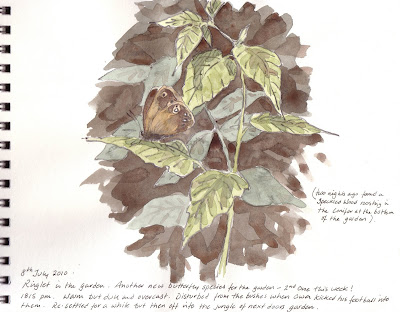 (two nights ago found a
Speckled Wood roosting in
the conifer at the bottom
of the garden).
8th July 2010.
Ringlet in the garden. Another new butterfly species for the garden - 2nd one this week!
1815 pm. Warm but dull and overcast. Disturbed from the bushes when Owen kicked his football into
them. Re-settled for a while but then off into the jungle of next doors garden.